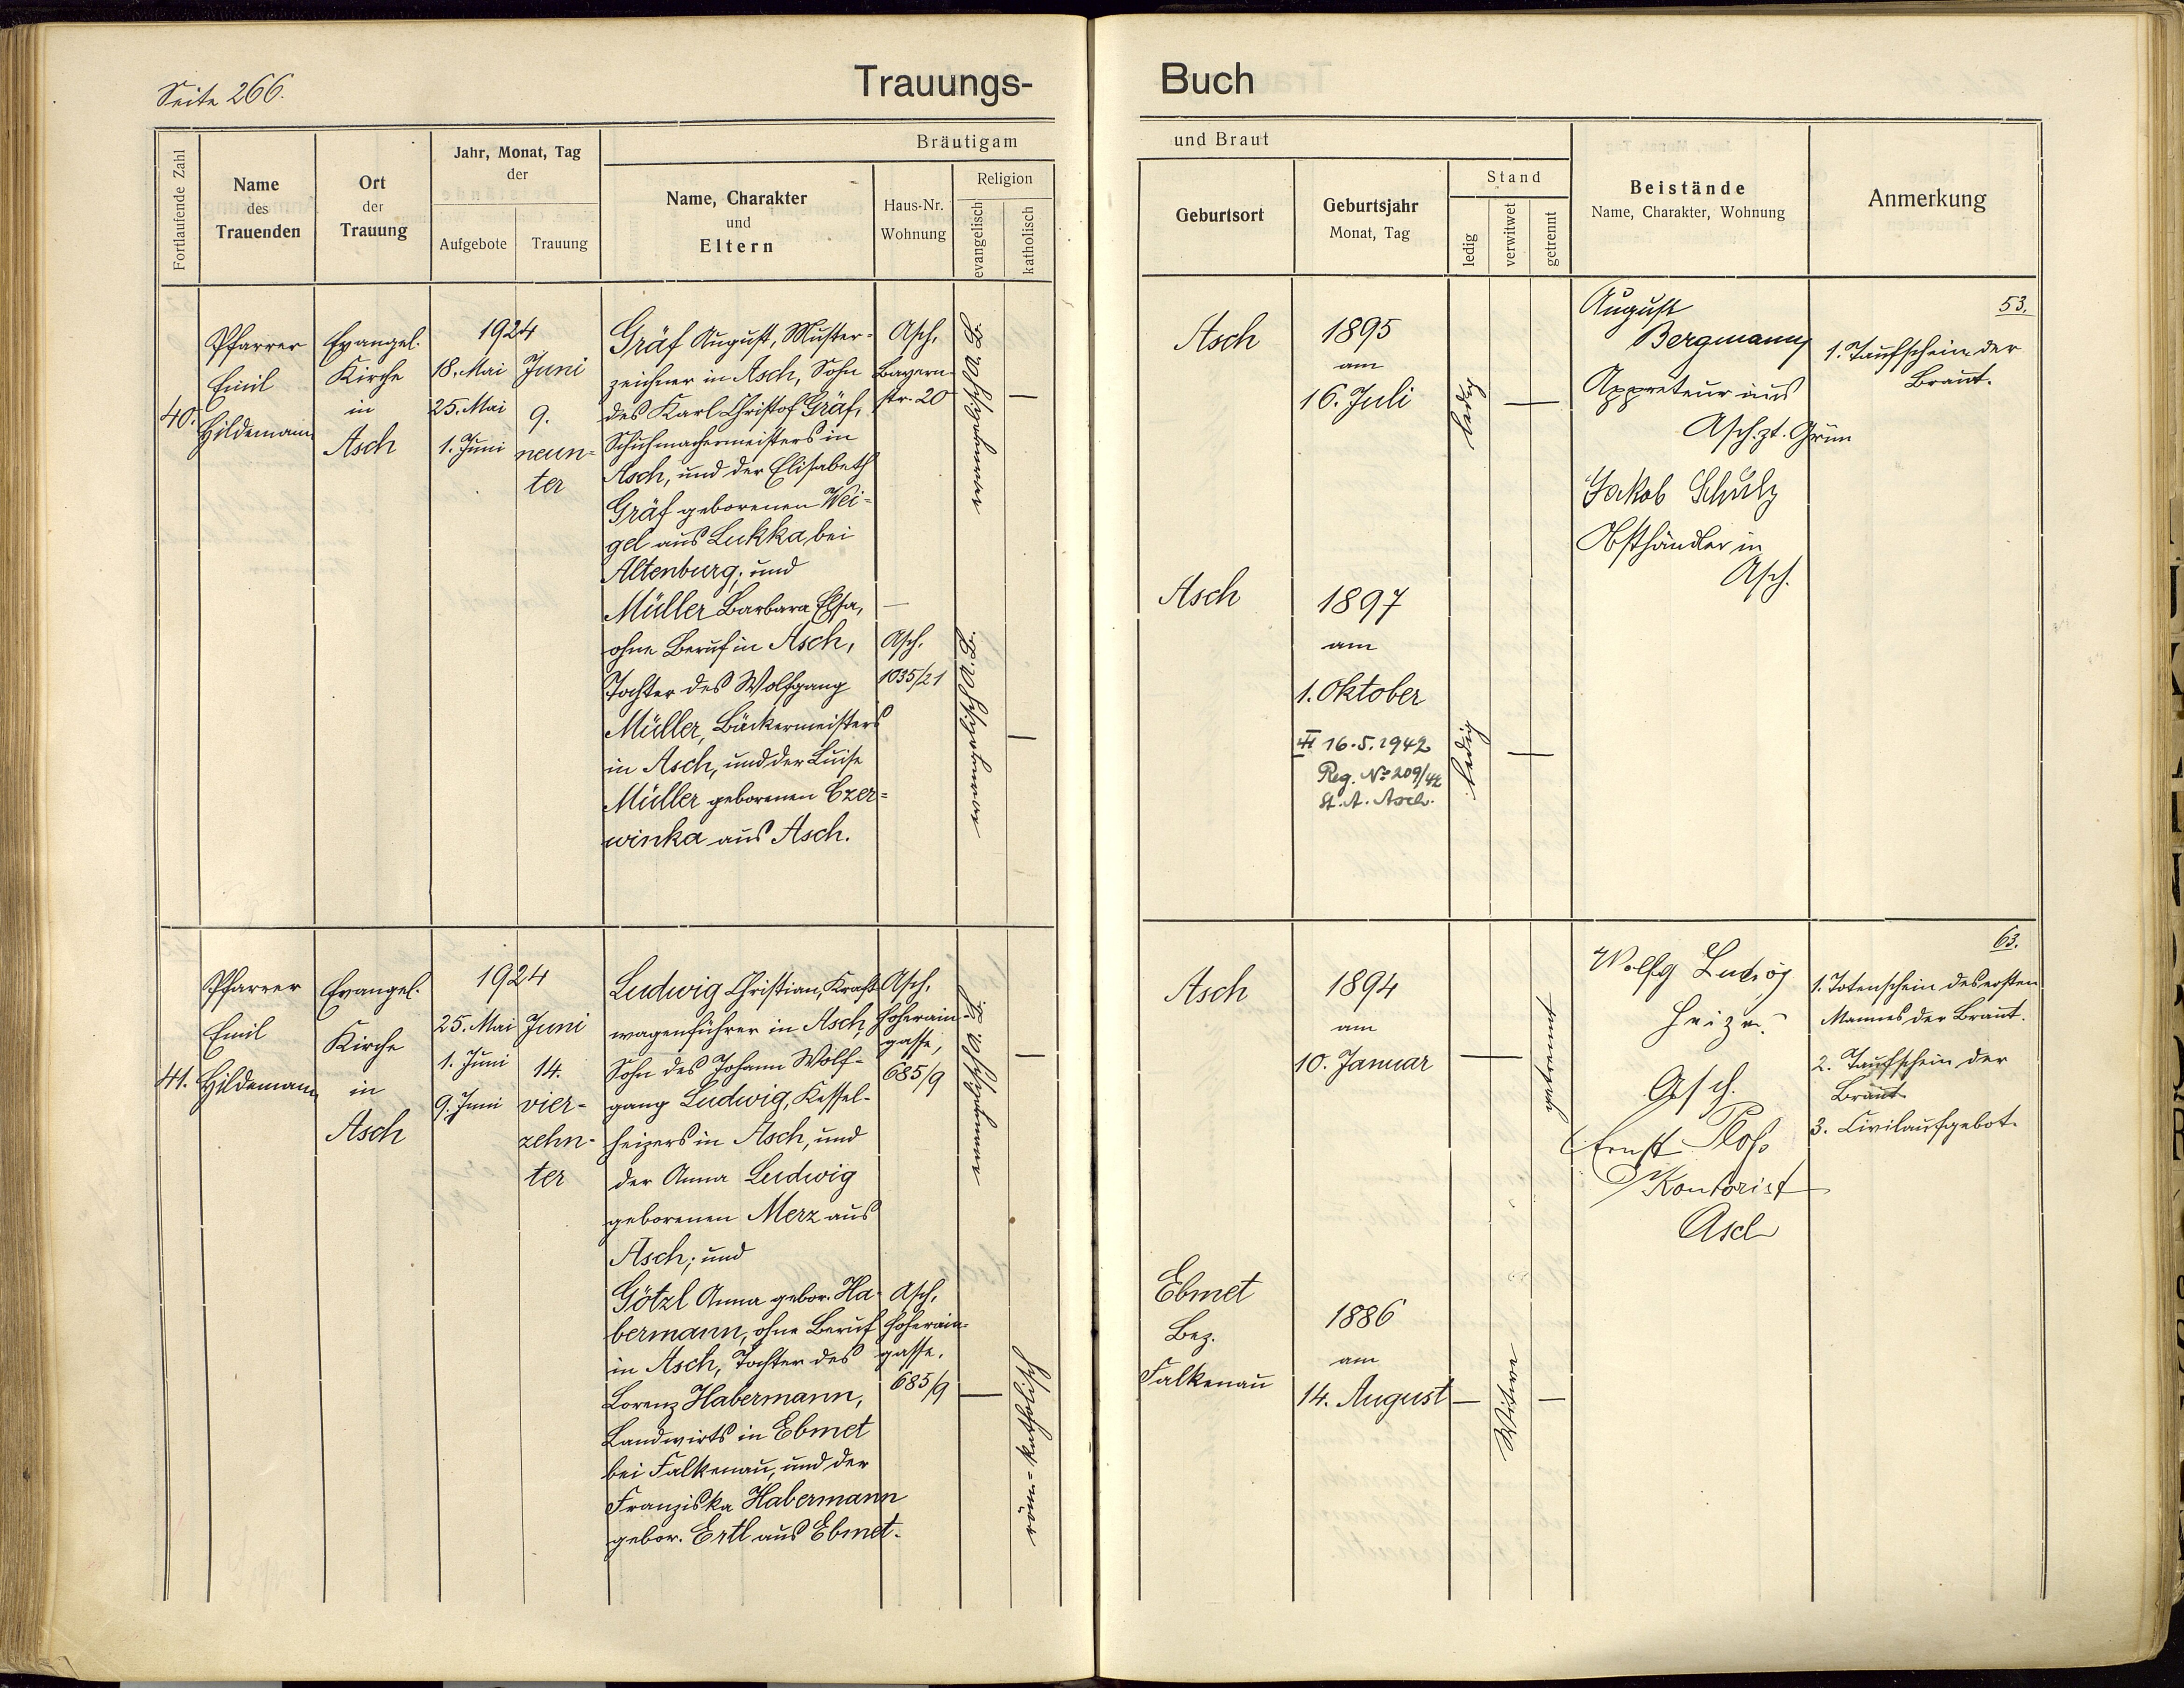 Seite 266.
Trauungs-
Buch
Fortlaufende Zahl
Name
des
Trauenden
Ort
der
Trauung
Jahr, Monat, Tag
der
Aufgebote
Trauung
Bräutigam
Name, Charakter
und
Eltern
Haus-Nr.
Wohnung
Religion
evangelisch
katholisch
und Braut
Geburtsort
Geburtsjahr
Monat, Tag
Stand
ledig
verwitwet
getrennt
Beistände
Name, Charakter, Wohnung
Anmerkung
40.
Pfarrer
Emil
Hildemann
Evangel.
Kirche
in
Asch
1924
18. Mai
25. Mai
1. Juni
Juni
9.
neun-
ter
Gräf August, Muster-
zeichner in Asch, Sohn
des Karl Christof Gräf,
Schuhmachermeisters in
Asch, und der Elisabeth
Gräf geborenen Wei-
gel aus Lukka bei
Altenburg; und
Müller Barbara Elsa,
ohne Beruf in Asch,
Tochter des Wolfgang
Müller, Bäckermeisters
in Asch, und der Luise
Müller geborenen Czer-
winka aus Asch.
Asch,
Bayern-
str. 20
—
Asch,
1035/21
evangelisch A. B.
—
evangelisch A. B.
—
Asch
1895
am
16. Juli
ledig
—
Asch
1897
am
1. Oktober
16.5.1942
Reg. No 209/42
St. A. Asch.
ledig
—
August
Bergmann
Appreteur aus
Asch. zt. Grün
Jakob Schulz
Obsthändler in
Asch.
53.
1. Taufschein der
Braut.
41.
Pfarrer
Emil
Hildemann
Evangel.
Kirche
in
Asch
1924
25. Mai
1. Juni
9. Juni
Juni
14.
vier-
zehn-
ter
Ludwig Christian, Kraft-
wagenführer in Asch,
Sohn des Johann Wolf-
gang Ludwig, Kessel-
heizers in Asch, und
der Anna Ludwig
geborenen Merz aus
Asch; und
Götzl Anna gebor. Ha-
bermann, ohne Beruf
in Asch, Tochter des
Lorenz Habermann,
Landwirts in Ebmet
bei Falkenau, und der
Franziska Habermann
gebor. Ertl aus Ebmet.
Asch,
Hoherain-
gasse,
685/9
Asch,
Hoherain-
gasse.
685/9
evangelisch A. B.
—
—
röm.-katholisch
Asch
1894
am
10. Januar
—
getrennt
Ebmet
Bez.
Falkenau
1886
am
14. August
—
Witwe
—
Wolfg Ludwig
Heizer
Asch.
Ernst Ploß
Kontorist
Asch
63.
1. Totenschein des ersten
Mannes der Braut.
2. Taufschein der
Braut
3. Civilaufgebot.